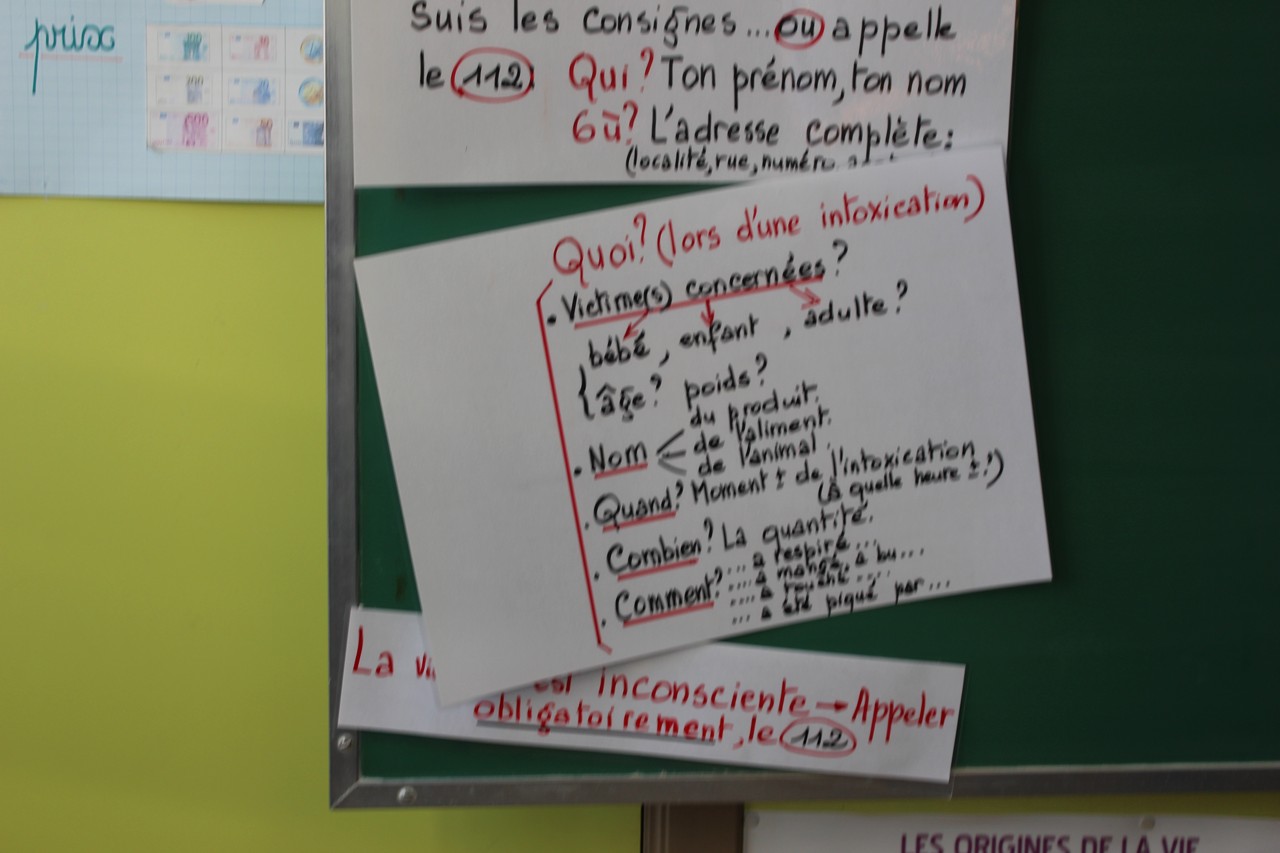 prix
Suis les consignes... ou appelle
le 112. Qui? Ton prénom, ton nom
Où? L'adresse complète:
(localité, rue, numéro
Quoi? (lors d'une intoxication)
. Victime(s) concernées?
bébé, enfant, adulte?
{âge? poids?
. Nom < du produit.
de l'aliment.
de l'animal.
. Quand? Moment ± de l'intoxication
(à quelle heure ±?)
. Combien? La quantité.
. Comment? ... a respiré...
.... a mangé, a bu...
.... a touché ....
... a été piqué par...
La est inconsciente → Appeler
obligatoirement, le 112
LES ORIGINES DE LA VIE